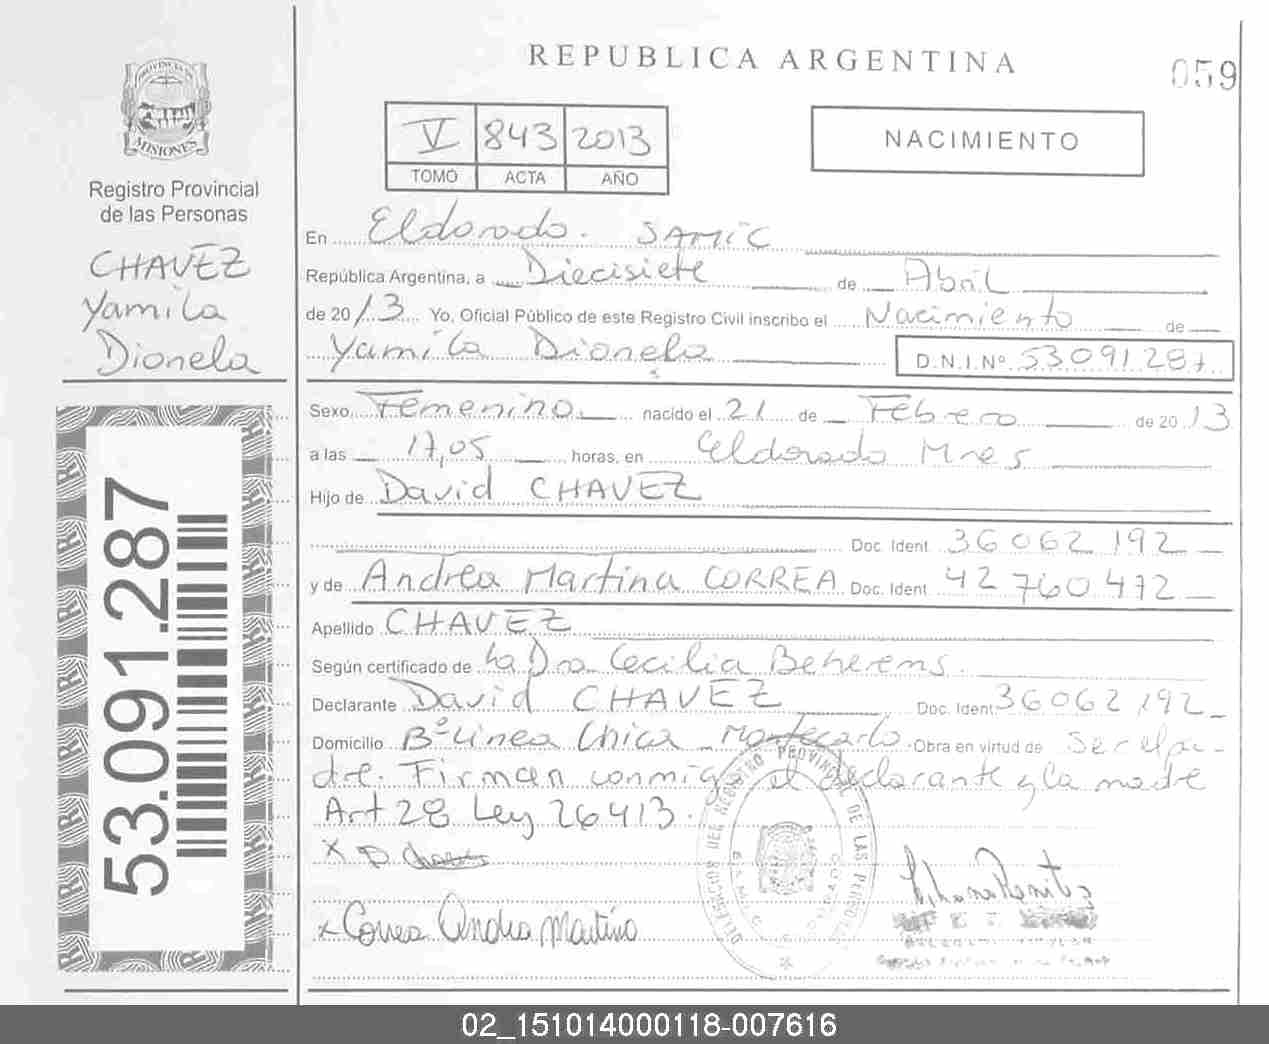 REPUBLICA ARGENTINA
059
PROVINCIA DE
MISIONES
Registro Provincial
de las Personas
CHAVEZ
Yamila
Dionela
53.091.287
V 843 2013
TOMO ACTA AÑO
NACIMIENTO
En Eldorado. SAMIC
República Argentina, a Diecisiete de Abril
de 2013 Yo, Oficial Público de este Registro Civil inscribo el Nacimiento de
Yamila Dionela D.N.I.Nº 53091287
Sexo Femenino nacido el 21 de Febrero de 2013
a las 17,05 horas, en Eldorado Mnes
Hijo de David CHAVEZ
Doc. Ident 36062192
y de Andrea Martina CORREA Doc. Ident 42760472
Apellido CHAVEZ
Según certificado de La Dra Cecilia Beherens.
Declarante David CHAVEZ Doc. Ident 36062192
Domicilio Bº Linea Chica - Montecarlo Obra en virtud de Ser el pa-
dre. Firman conmigo el declarante y la madre
Art 28 Ley 26413.
x D Chavez
x Correa Andrea Martina
DEL REGISTRO PROVINCIAL DE LAS PERSONAS
02_151014000118-007616